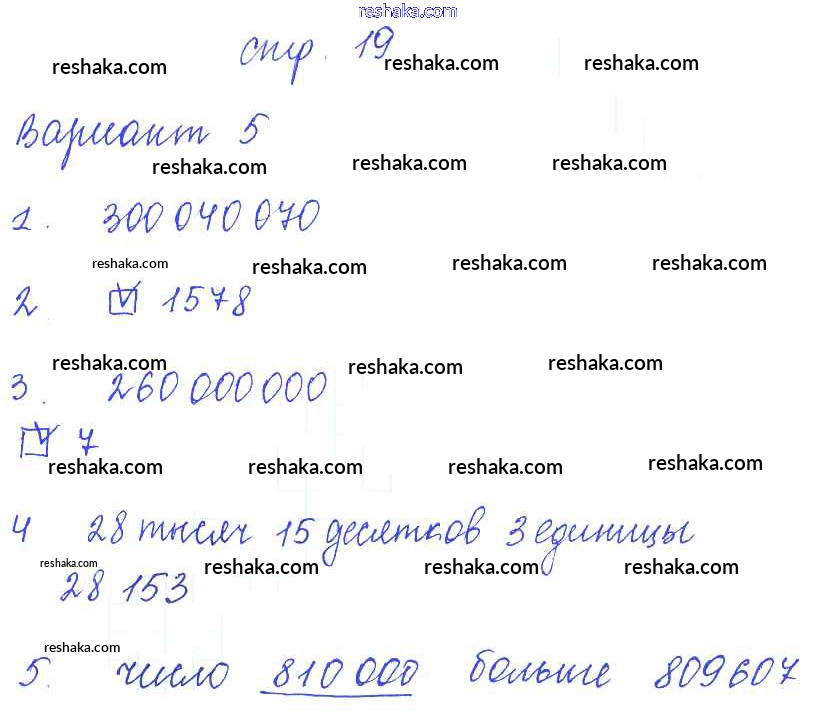 reshaka.com
стр. 19
reshaka.com reshaka.com reshaka.com
Вариант 5
reshaka.com reshaka.com reshaka.com
1. 300 040 070
reshaka.com reshaka.com reshaka.com reshaka.com
2. ☑ 1578
reshaka.com reshaka.com reshaka.com
3. 260 000 000
☑ 7
reshaka.com reshaka.com reshaka.com reshaka.com
4 28 тысяч 15 десятков 3 единицы
reshaka.com reshaka.com reshaka.com reshaka.com
28 153
reshaka.com
5. число 810 000 больше 809 607